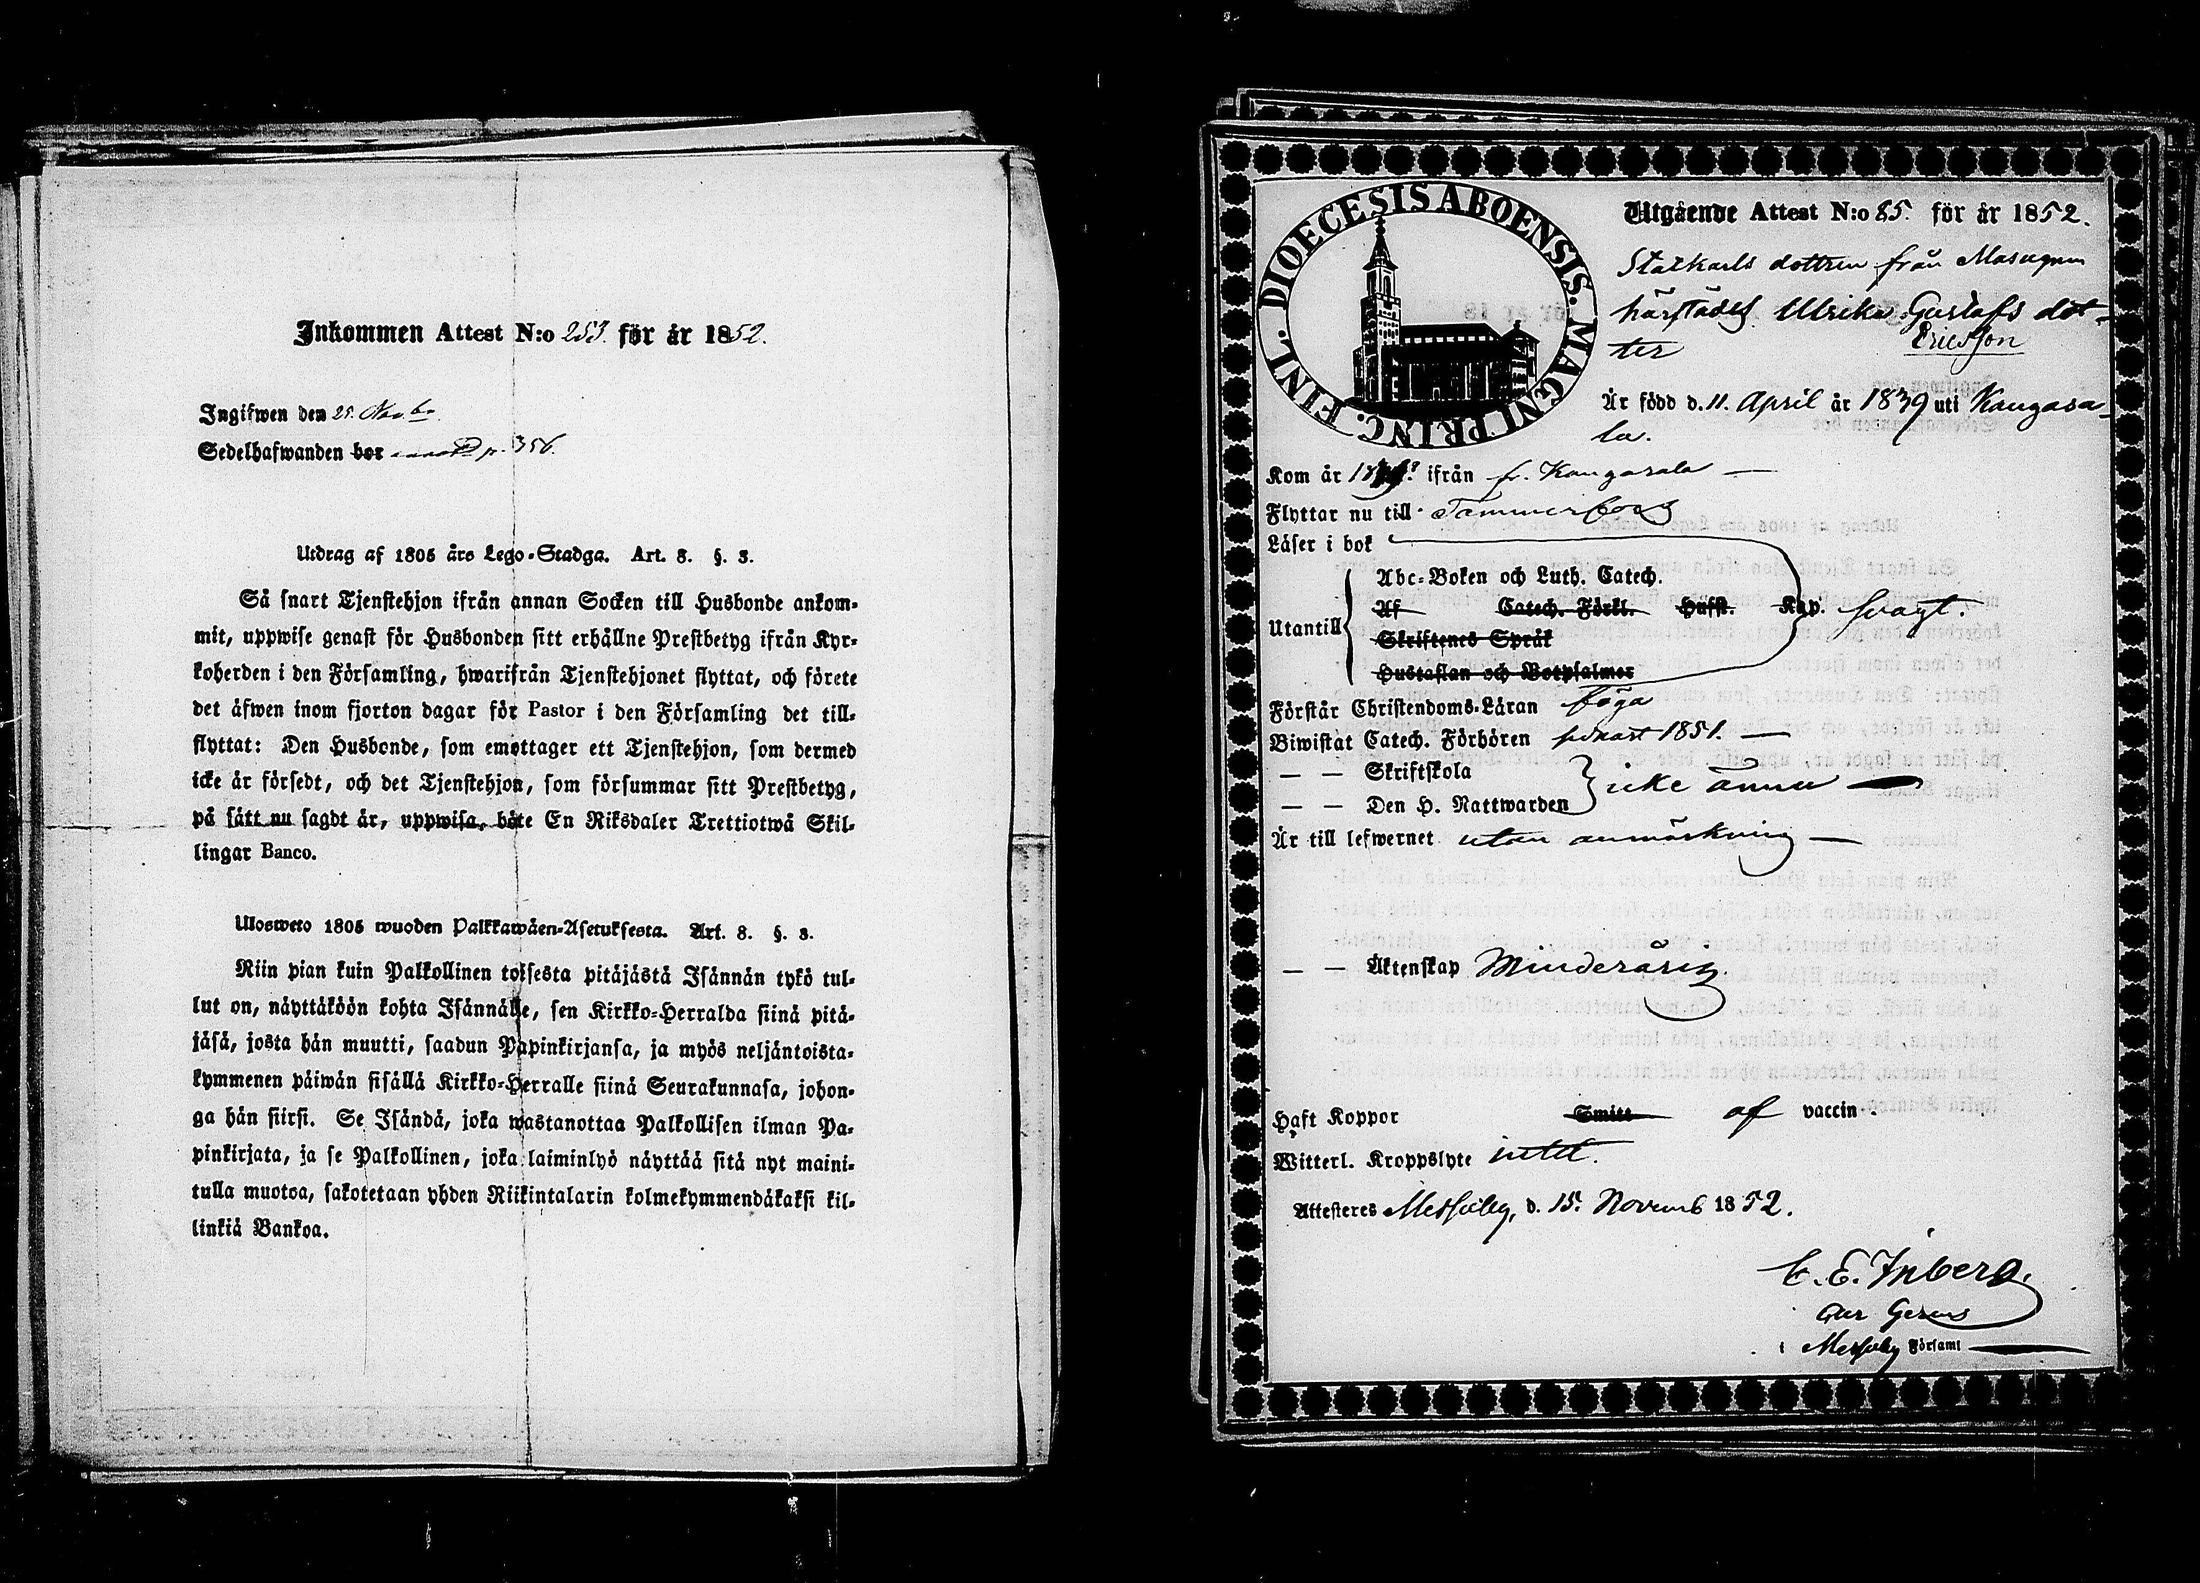 Inkommen Attest N:o 253. för år 1852.
Ingifwen den 25 Novbr
Sedelhafwanden bor p. 356.
Utdrag af 1805 års Lego-Stadga. Art. 8. §. 3.
Så snart Tjenstehjon ifrån annan Socken till Husbonde ankom-
mit, uppwise genast för Husbonden sitt erhållne Prestbetyg ifrån Kyr-
koherden i den Församling, hwarifrån Tjenstehjonet flyttat, och förete
det äfwen inom fjorton dagar för Pastor i den Församling det till-
flyttat: Den Husbonde, som emottager ett Tjenstehjon, som dermed
icke är försedt, och det Tjenstehjon, som försummar sitt Prestbetyg,
på sätt nu sagdt är, uppwisa, böte En Riksdaler Trettiotwå Skil-
lingar Banco.
Ulosweto 1805 wuoden Palkkawäen-Asetuksesta. Art. 8. §. 3.
Niin pian kuin Palkollinen toisesta pitäjästä Isännän tykö tul-
lut on, näyttäköön kohta Isännälle, sen Kirkko-Herralda siinä pitä-
jäsä, josta hän muutti, saadun Papinkirjansa, ja myös neljäntoista-
kymmenen päiwän sisällä Kirkko-Herralle siinä Seurakunnasa, johon-
ga hän siirsi. Se Isändä, joka wastanottaa Palkollisen ilman Pa-
pinkirjata, ja se Palkollinen, joka laiminlyö näyttää sitä nyt maini-
tulla muotoa, sakotetaan yhden Riikintalarin kolmekymmendäkaksi kil-
linkiä Bankoa.
DIOECESIS ABOENSIS. MAGNI PRINC. FINL.
Utgående Attest N:o 85. för år 1852.
Statkarls dottren från Masugnen
härstädes Ulrika Gustafs dot-
ter Ericsson
Är född d. 11. April år 1839 uti Kangasa-
la.
Kom år ifrån fr. Kangasala
Flyttar nu till Tammerfors
Läser i bok
Abc-Boken och Luth. Catech.
Utantill Af Catech. Förkl. Hufst. Kap. svagt.
Skriftenes Språk
Hustaflan och Botpsalmer
Förstår Christendoms-Läran föga
Biwistat Catech. Förhören senast 1851.
— — Skriftskola
— — Den H. Nattwarden icke ännu
Är till lefwernet utan anmärkning
— — Äktenskap Minderårig.
Haft Koppor Smitt af vaccin
Witterl. Kroppslyte intet.
Attesteres Messuby, d. 15. Novemb 1852.
C. E. Inberg.
i Messuby Församl